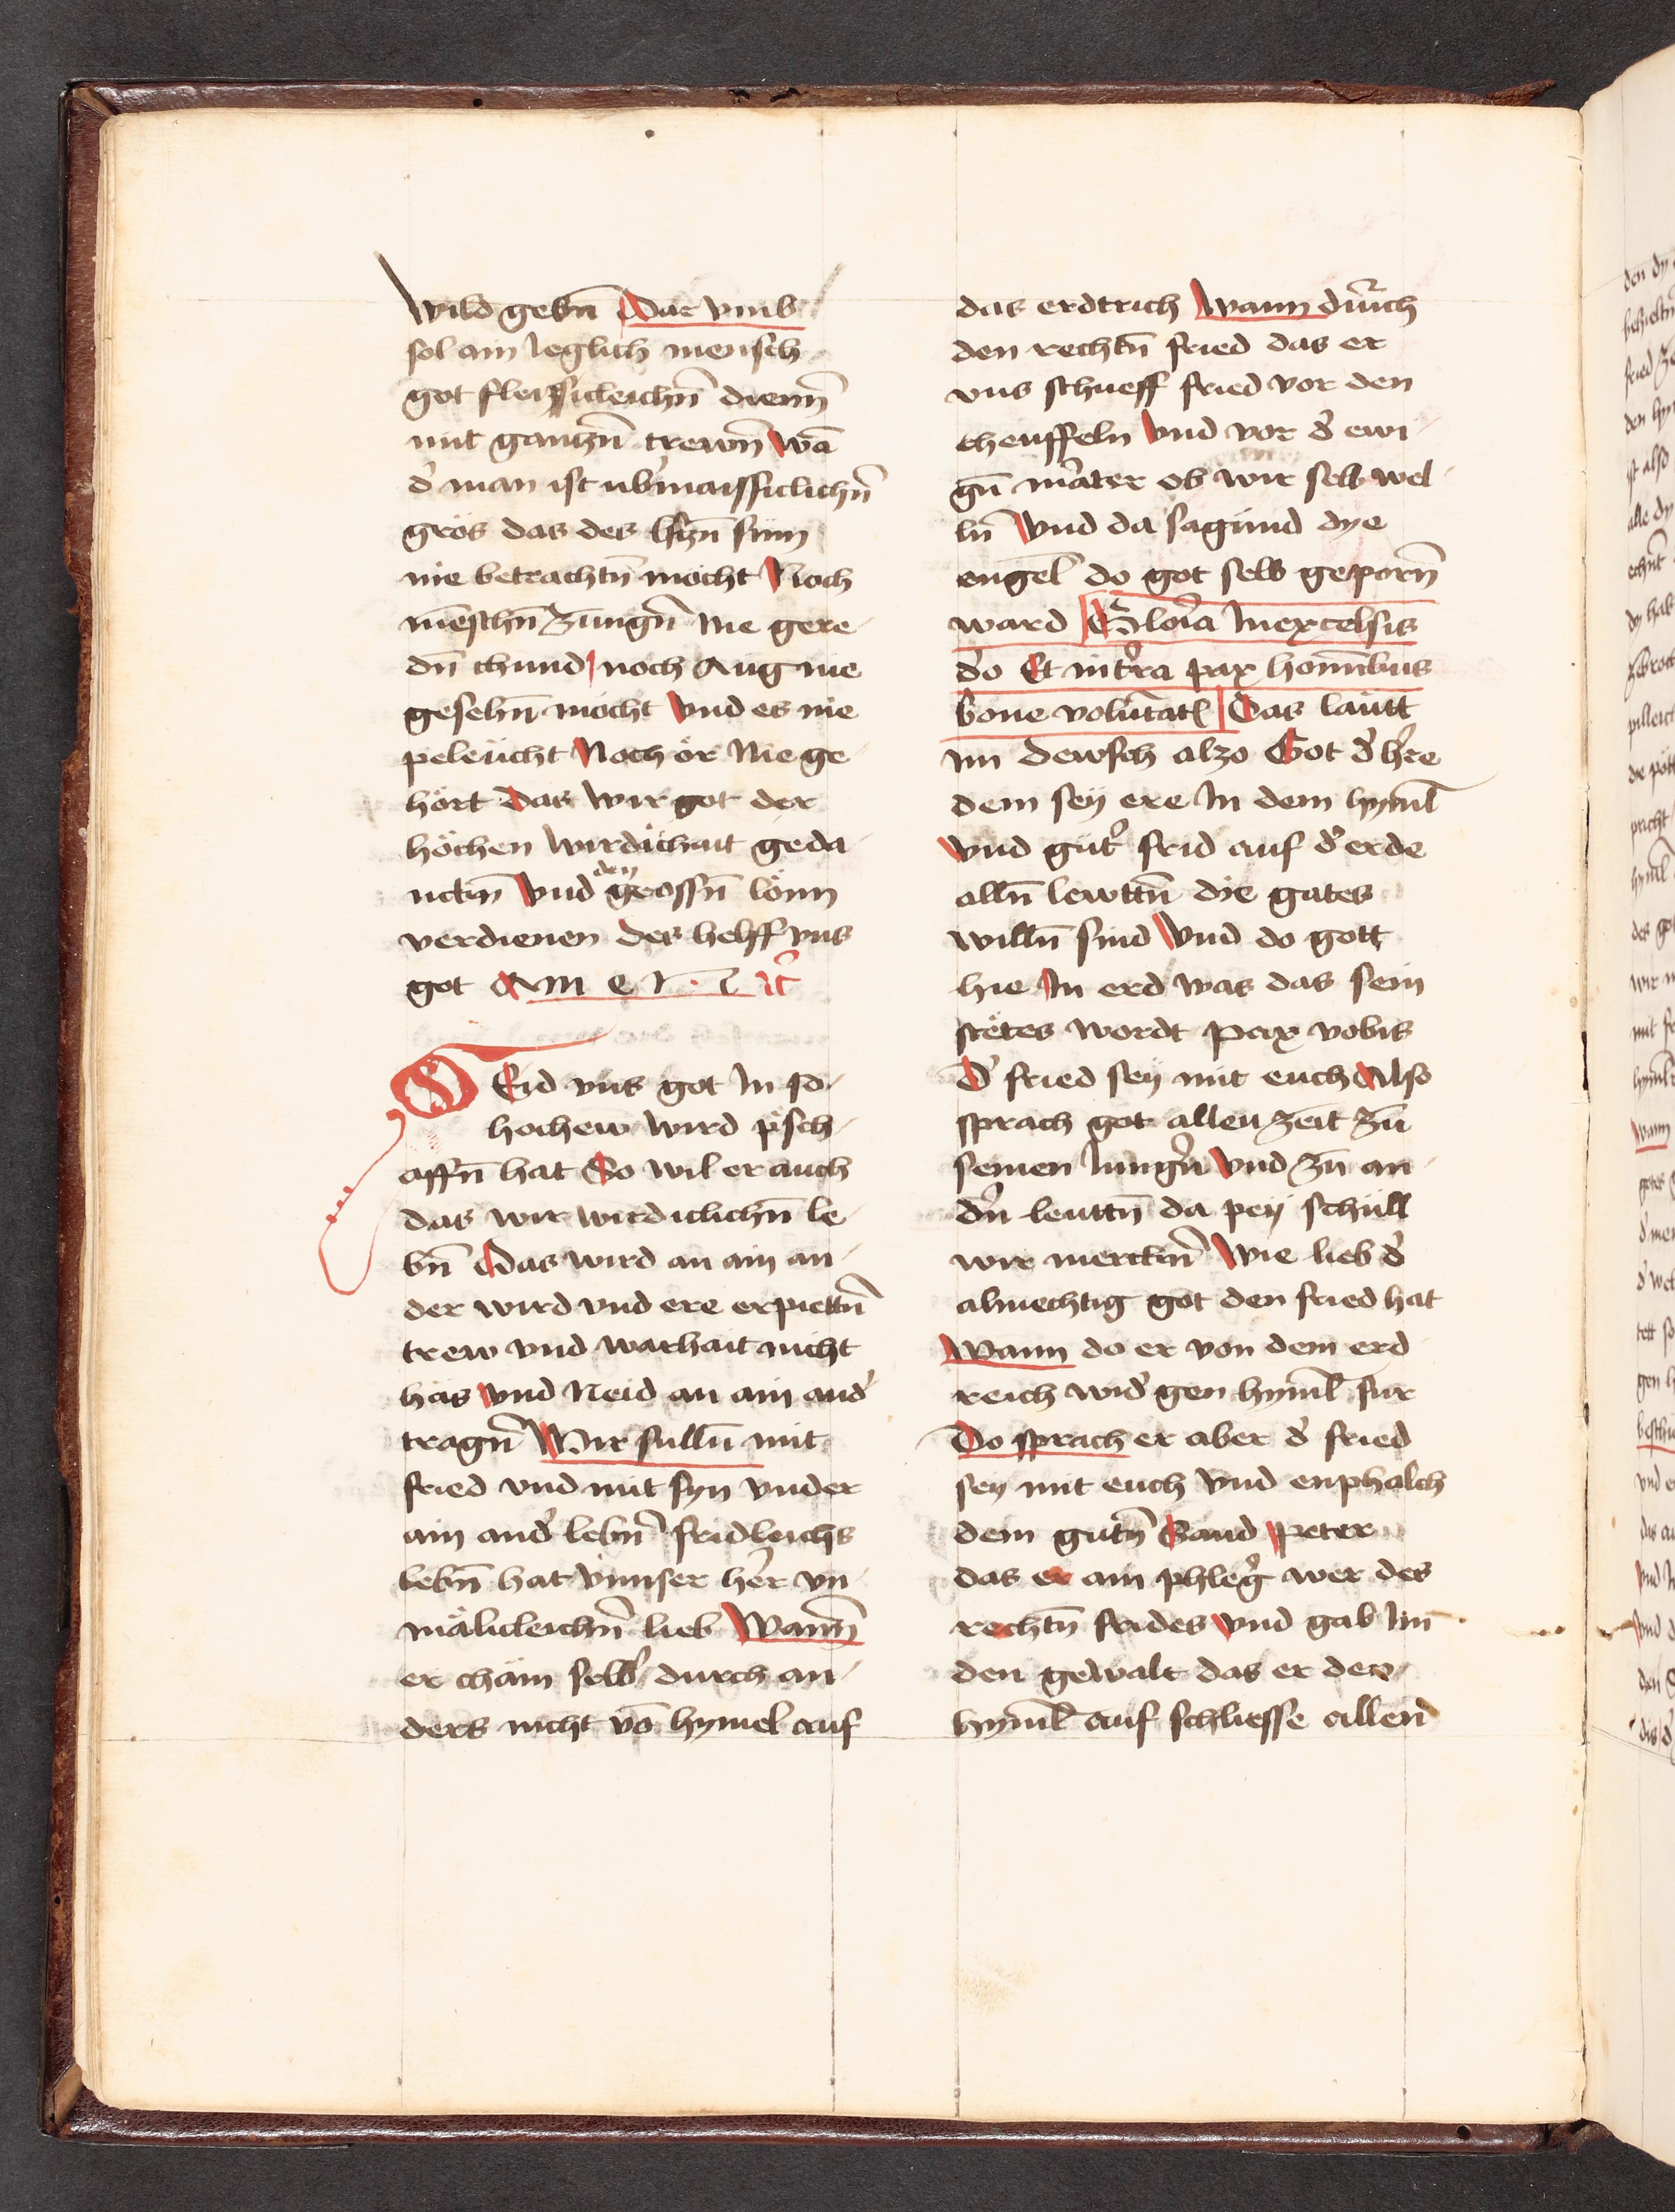 wild gebn̄ Dar vmb
sol ain Jeglich mensch
got fleissicleichn̄ dienn̄
mit gantzn̄ trewn̄ wā
d' man ist ub'maissiclichn̄
grös das des h'tzn̄ sinn
nie betrachtn̄ mocht Noch
mēschn̄ Zungn̄ Nie gere
dn̄ chund noch Aug nie
gesehn̄ möcht vnd es nie
peleücht Noch ör Nie ge
hört das wir got der
höchen wirdichait geda
nckn̄ vnd den grossn̄ lönn
verdienen des helff vns
got Am e n · c̄ ꝛc̄
SEid vns got In so
hochew wird p'sch
affn̄ hat So wil er auch
das wir wirdiclichn̄ le
bn̄ Das wird an ain an
der wird vnd ere erpiettn̄
trew vnd warhait nicht
has vnd Neid an ain and'
tragn̄ Wir sulln̄ mit
fried vnd mit syn vnder
ain and' lebn̄ fridleichs
lebn̄ hat vnnser her vn
mälicleichn̄ lieb Wann̄
er cham selb' durch an
ders nicht vō hymel auf
das erdtrich Wann durch
den rechtn̄ fried das er
vns schueff fried vor den
theuffeln vnd vor d' ewi
gn̄ m'ater ob wir selb wel
ln̄ Vnd da sagund dye
engel do got selb geporn̄
ward Glo'ia Inexcelsis
d'o Et int'ra pax hominibus
bone volūtatꝭ Das lautt
Im dewsch alzo Got d' h're
dem sey ere In dem hyml̄
vnd gut' frid auf d' erde
alln̄ lewttn̄ die gates
willn̄ sind Vnd do gott
hie In erd was das sein
stëtes wordt Pax vobis
d' fried sey mit euch Also
sprach got allen zeit Zu
seinen Jung'n̄ vnd Zu an
d'n̄ leuttn̄ da pey schüll
wir merckn̄ Wie lieb d'
almechtig got den fried hat
Wann do er von dem erd
reich wid' gen hyml̄ fur
Do sprach er aber d' fried
sey mit euch vnd enphalch
dem gutn̄ Sand Peter
das er ain phleg' wer des
rechtn̄ frides vnd gab Im
den gewalt das er den
hyml̄ auf schliesse allen